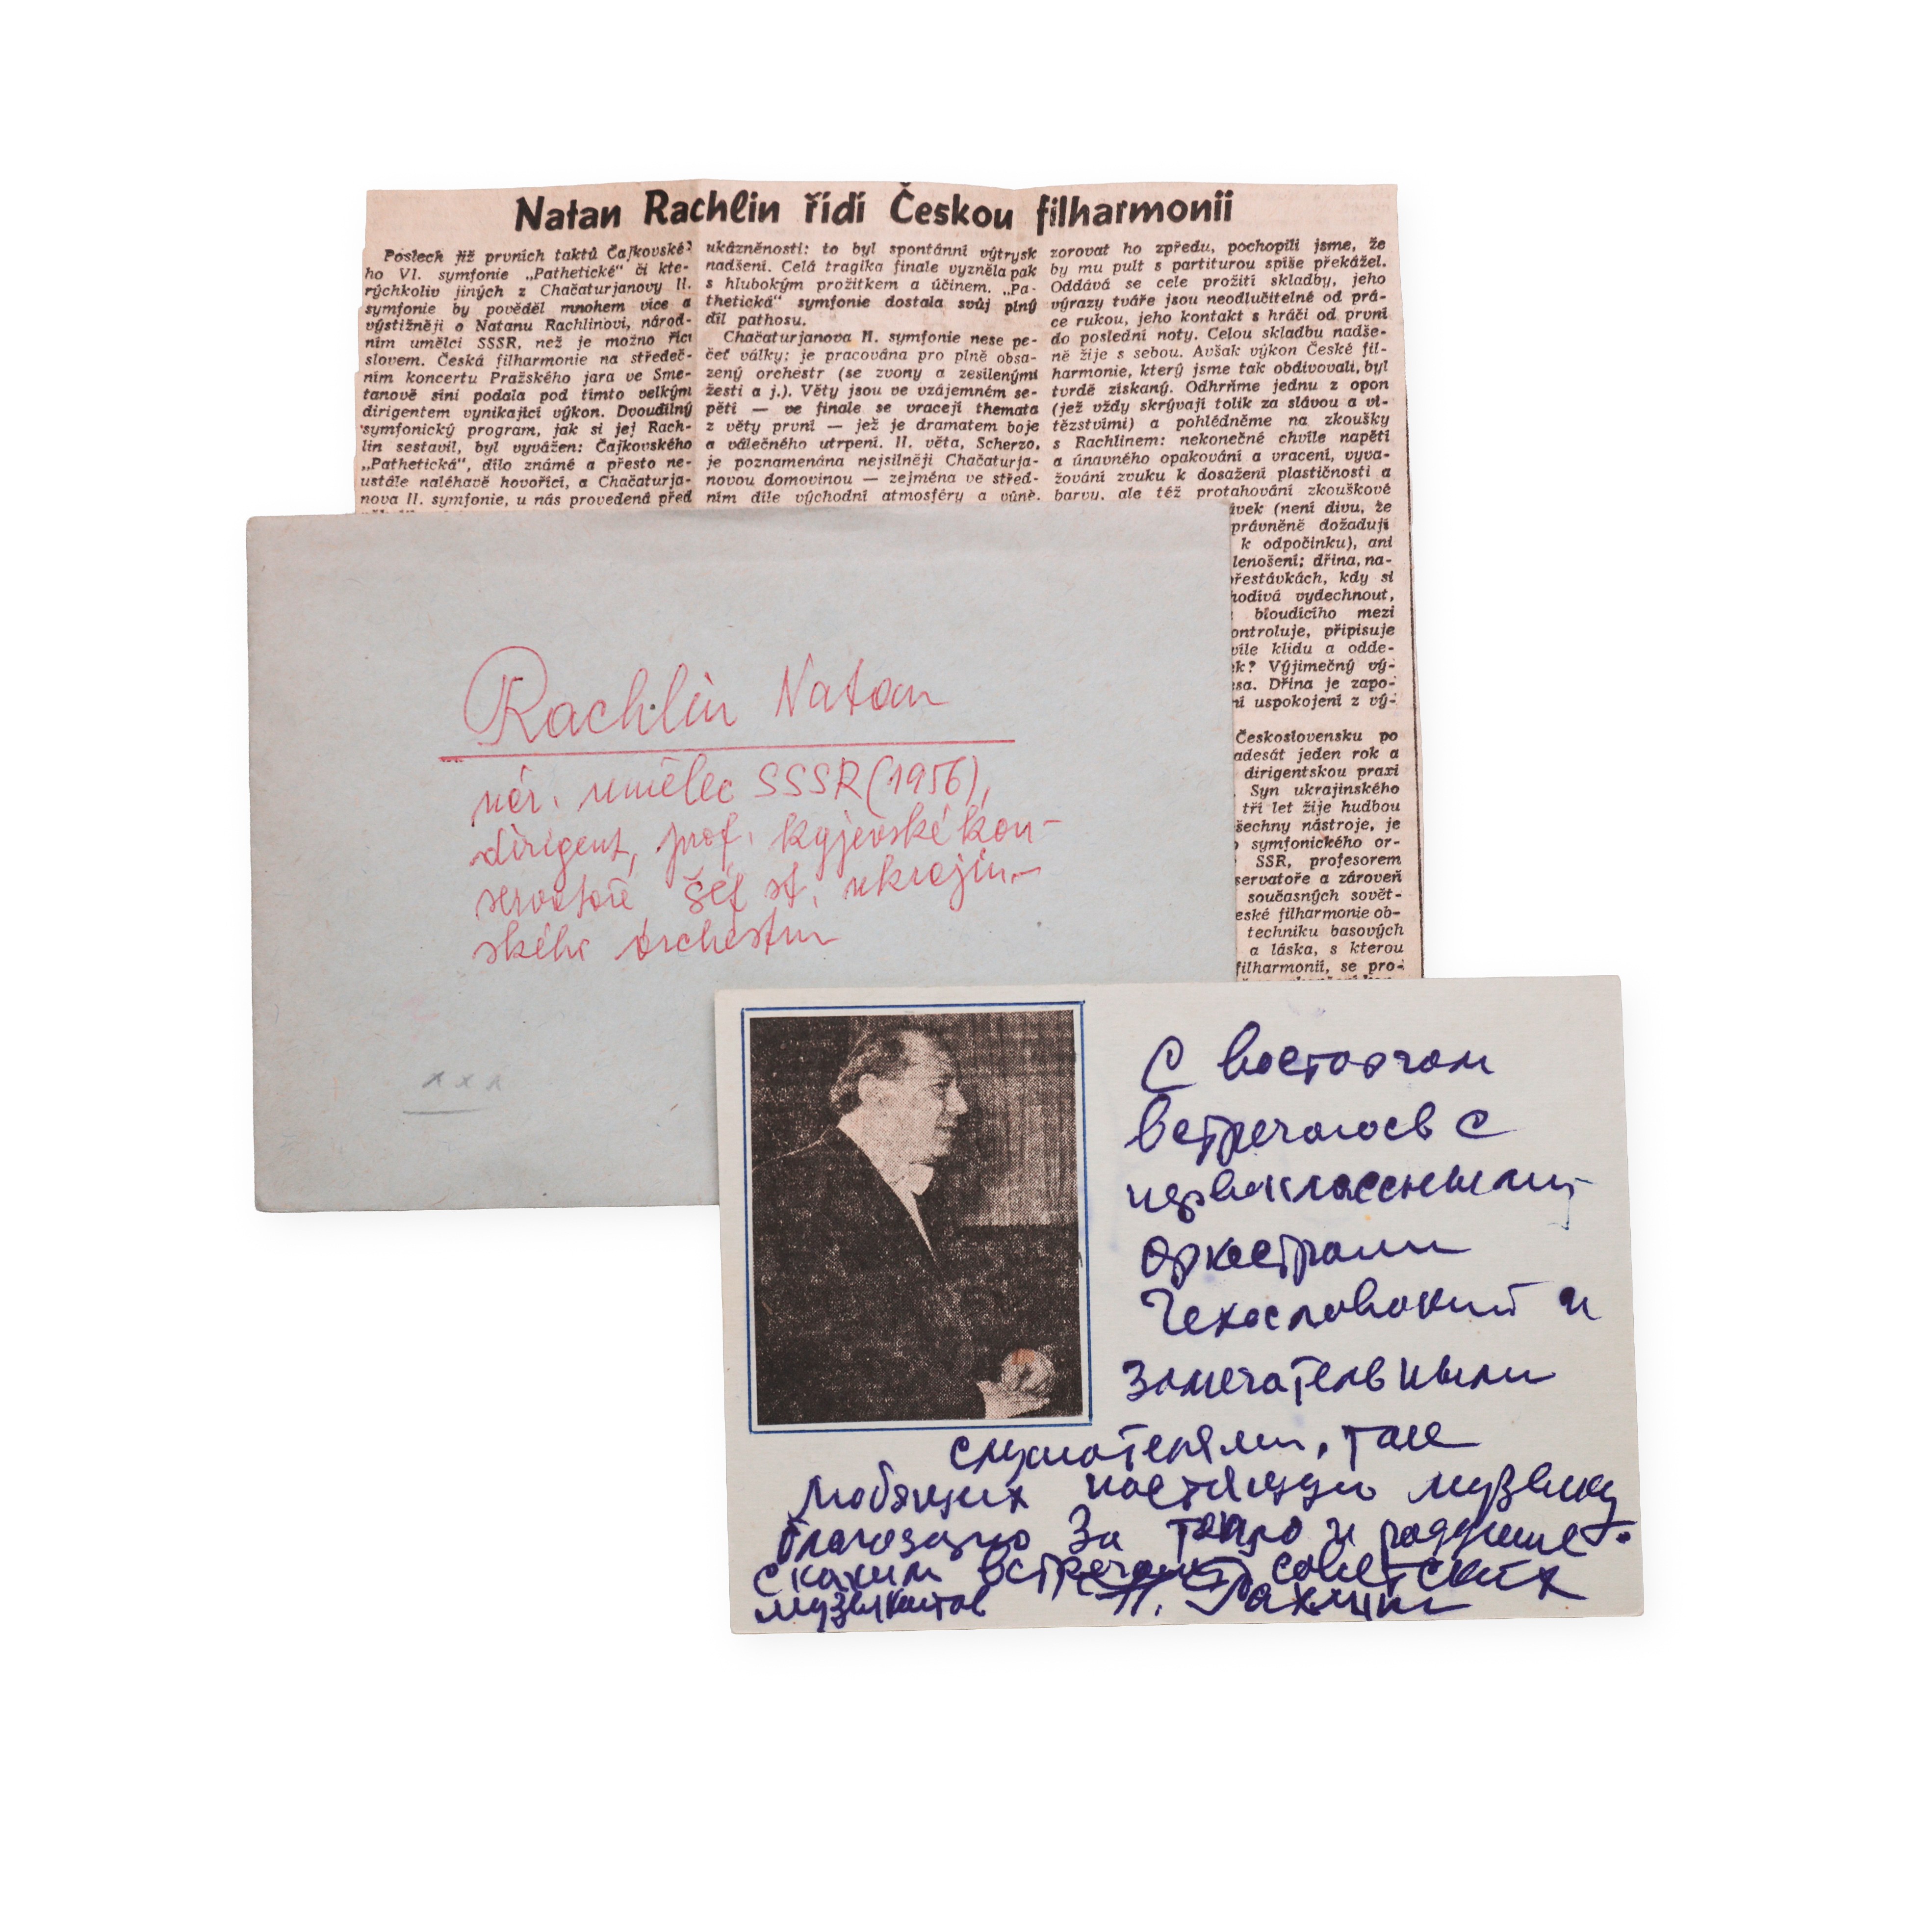 Natan Rachlin řídí Českou filharmonii
Poslech již prvních taktů Čajkovské-
ho VI. symfonie „Pathetické“ či kte-
rýchkoliv jiných z Chačaturjanovy II.
symfonie by pověděl mnohem více a
výstižněji o Natanu Rachlinovi, národ-
ním umělci SSSR, než je možno říci
slovem. Česká filharmonie na středeč-
ním koncertu Pražského jara ve Sme-
tanově síni podala pod tímto velkým
dirigentem vynikající výkon. Dvoudílný
symfonický program, jak si jej Rach-
lin sestavil, byl vyvážen: Čajkovského
„Pathetická“, dílo známé a přesto ne-
ustále naléhavě hovořící, a Chačaturja-
nova II. symfonie, u nás provedená před
ukázněnosti: to byl spontánní výtrysk
nadšení. Celá tragika finale vyzněla pak
s hlubokým prožitkem a účinem. „Pa-
thetická“ symfonie dostala svůj plný
díl pathosu.
Chačaturjanova II. symfonie nese pe-
čeť války; je pracována pro plně obsa-
zený orchestr (se zvony a zesílenými
žesti a j.). Věty jsou ve vzájemném se-
pětí — ve finale se vracejí themata
z věty první — jež je dramatem boje
a válečného utrpení. II. věta, Scherzo,
je poznamenána nejsilněji Chačaturja-
novou domovinou — zejména ve střed-
ním díle východní atmosféry a vůně.
zorovat ho zpředu, pochopili jsme, že
by mu pult s partiturou spíše překážel.
Oddává se cele prožití skladby, jeho
výrazy tváře jsou neodlučitelné od prá-
ce rukou, jeho kontakt s hráči od první
do poslední noty. Celou skladbu nadše-
ně žije s sebou. Avšak výkon České fil-
harmonie, který jsme tak obdivovali, byl
tvrdě získaný. Odhrňme jednu z opon
(jež vždy skrývají tolik za slávou a ví-
tězstvími) a pohlédněme na zkoušky
s Rachlinem: nekonečné chvíle napětí
a únavného opakování a vracení, vyva-
žování zvuku k dosažení plastičnosti a
barvy, ale též protahování zkouškové
ávek (není divu, že
právněně dožadují
k odpočinku), ani
lenošení; dřina, na-
řestávkách, kdy si
hodivá vydechnout,
bloudícího mezi
ontroluje, připisuje
víle klidu a odde-
k? Výjimečný vý-
sa. Dřina je zapo-
ní uspokojení z vý-
Československu po
adesát jeden rok a
dirigentskou praxi
Syn ukrajinského
tří let žije hudbou
šechny nástroje, je
symfonického or-
SSR, profesorem
servatoře a zároveň
současných sovět-
eské filharmonie ob-
techniku basových
a láska, s kterou
filharmonii, se pro-
Rachlin Natan
nár. umělec SSSR (1956),
dirigent, prof. kyjevské kon-
servatoře šéf st. ukrajin-
ského orchestru
x x x
С восторгом
встречаюсь с
первоклассными
оркестрами
Чехословакии и
замечательными
слушателями, так
любящих настоящую музыку
благодарю за тепло и радушие.
с каким встречают советских
музыкантов Н. Рахлин